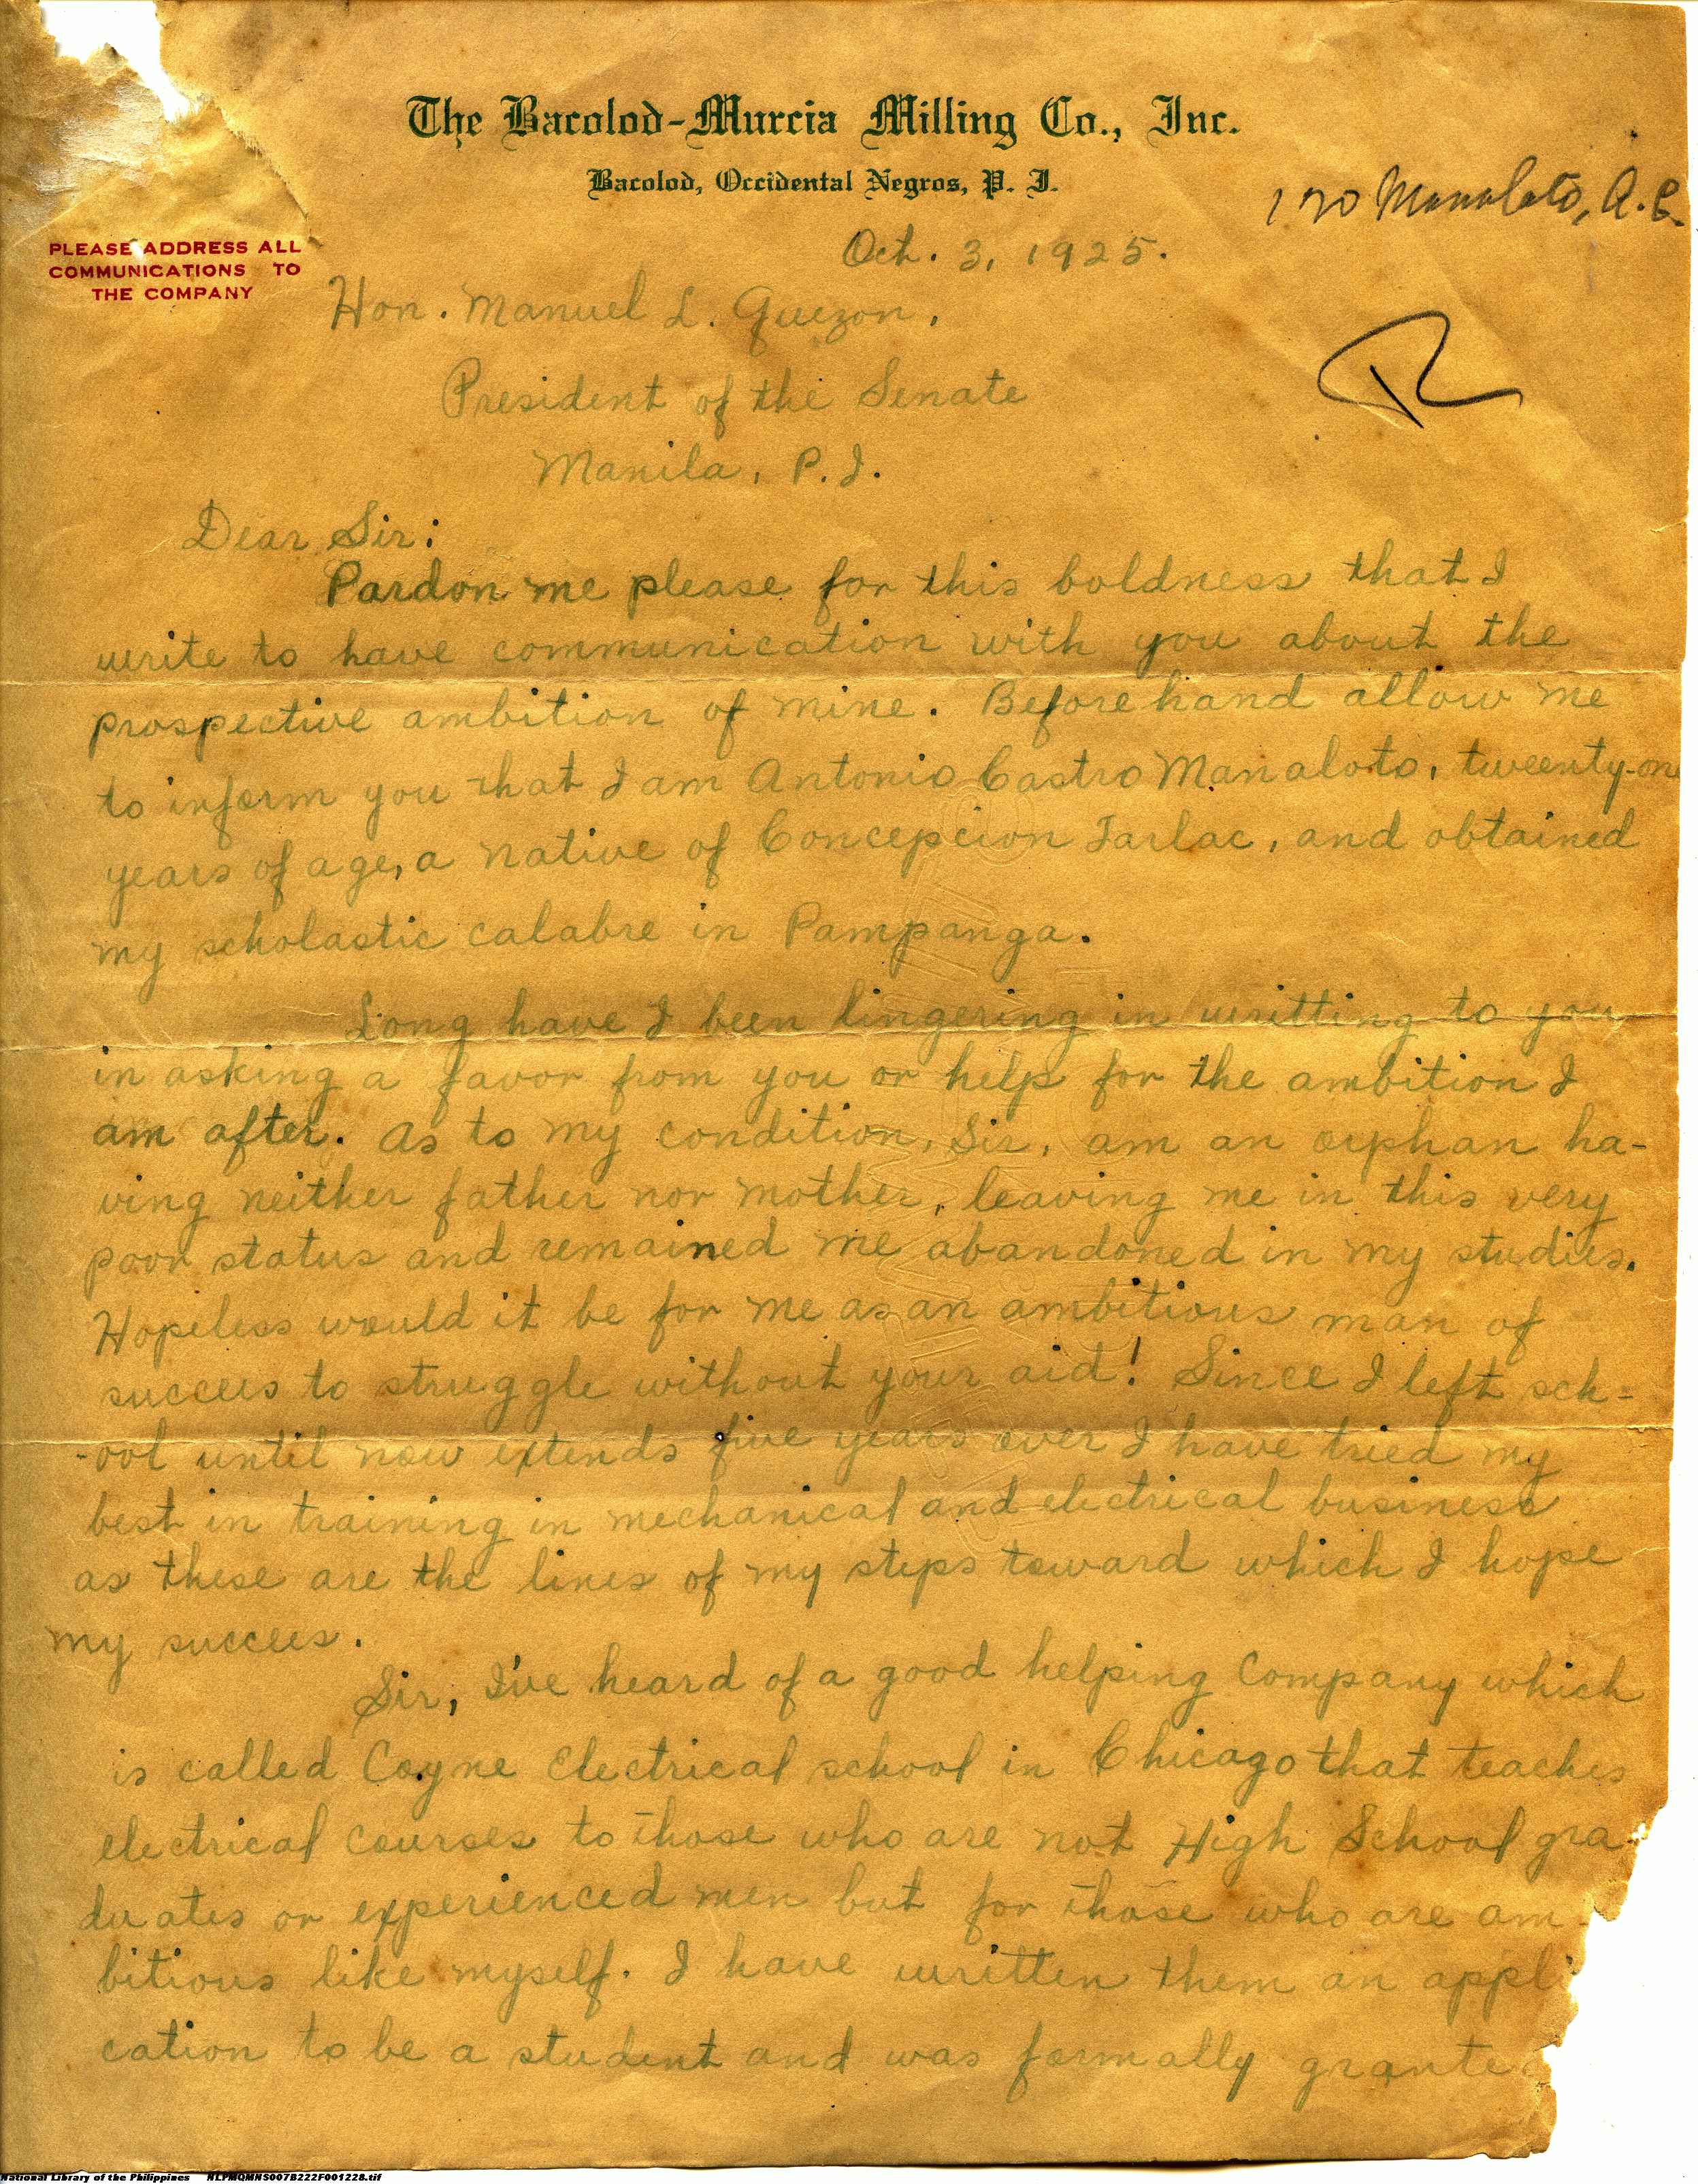 The Bacolod-Murcia Milling Co., Inc.
Bacolod, Occidental Negros, P. I.
170 Manaloto, A. C.
PLEASE ADDRESS ALL
COMMUNICATIONS TO
THE COMPANY
Oct. 3, 1925.
Hon. Manuel L. Quezon,
President of the Senate
Manila, P.I.
Dear Sir:
Pardon me please for this boldness that I
write to have communication with you about the
prospective ambition of mine. Beforehand allow me
to inform you that I am Antonio Castro Manaloto, tweenty-one
years of age, a native of Concepcion Tarlac, and obtained
my scholastic calabre in Pampanga.
Long have I been lingering in writting to you
in asking a favor from you or help for the ambition I
am after. As to my condition, Sir, am an orphan ha-
ving neither father nor mother, leaving me in this very
poor status and remained me abandoned in my studies.
Hopeless would it be for me as an ambitious man of
success to struggle without your aid! Since I left sch-
-ool until now extends five years over I have tried my
best in training in mechanical and electrical business
as these are the lines of my steps toward which I hope
my success.
Sir, I've heard of a good helping Company which
is called Coyne Electrical school in Chicago that teaches
electrical courses to those who are not High School gra-
duates or experienced men but for those who are am-
bitious like myself. I have written them an appli
cation to be a student and was formally granted
National Library of the Philippines NLPMQMNS007B222F001228.tif